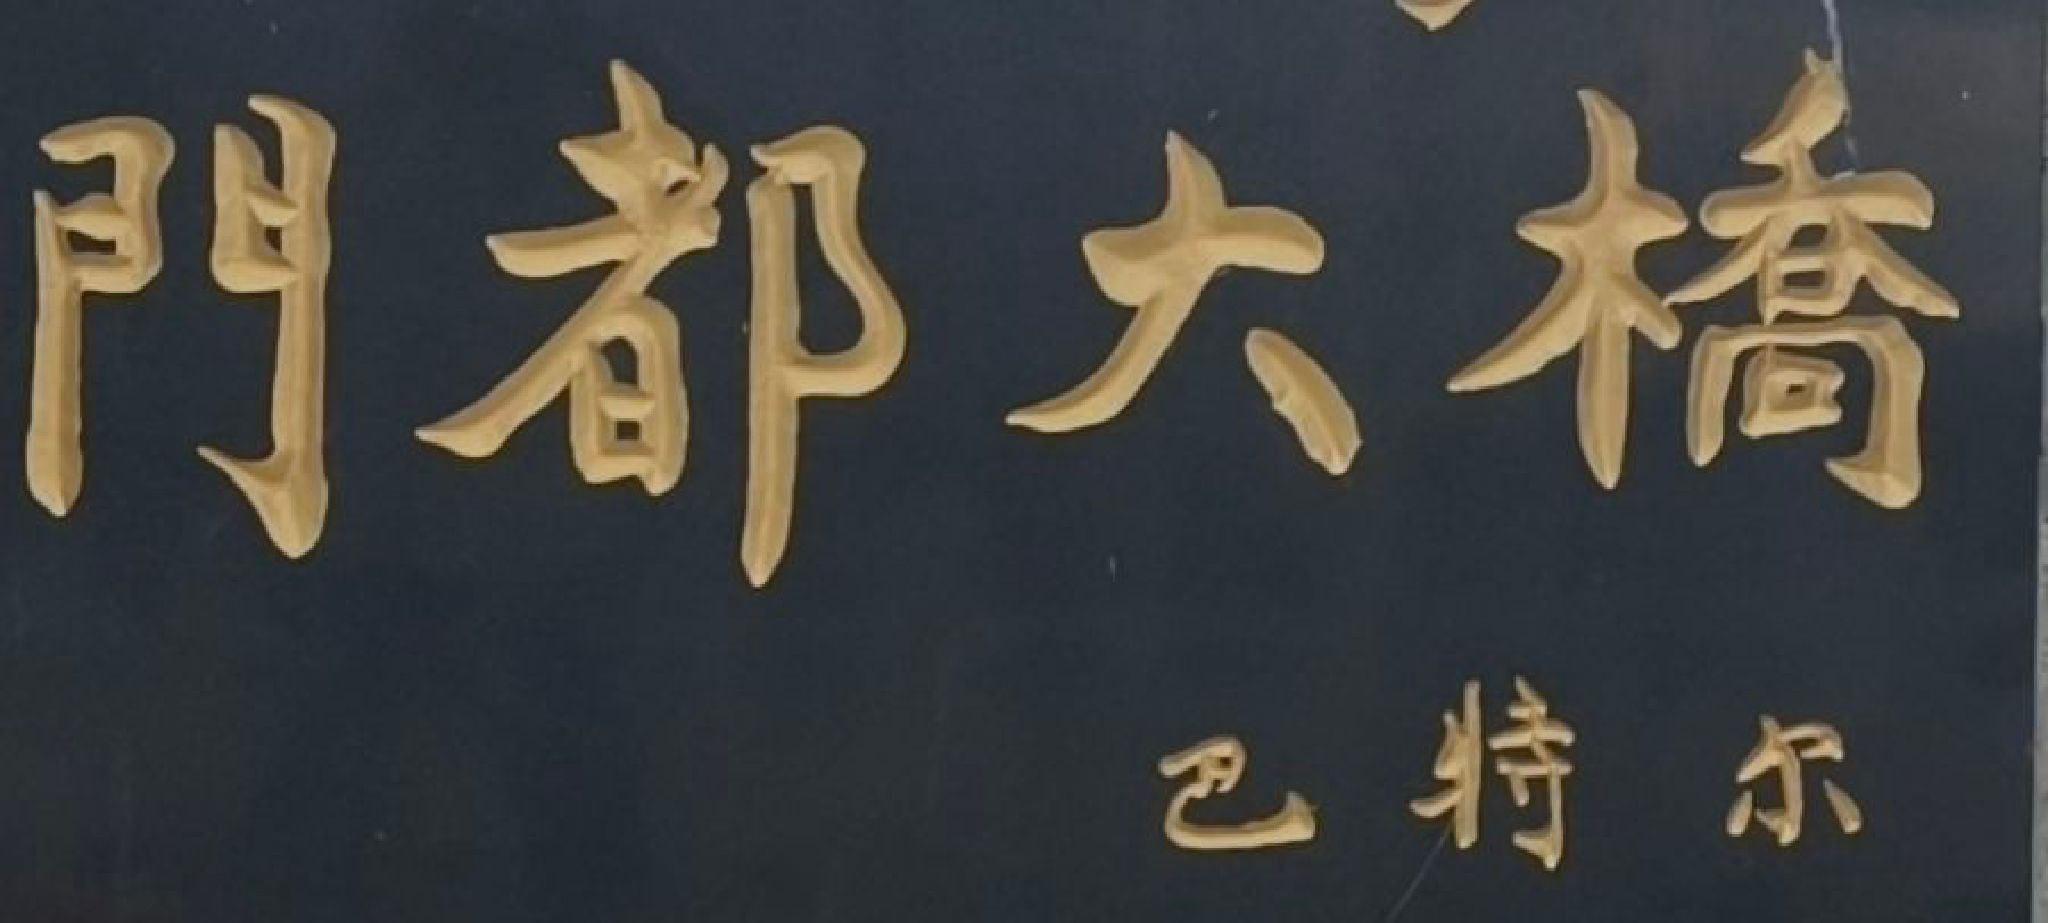 門都大橋
巴特尔